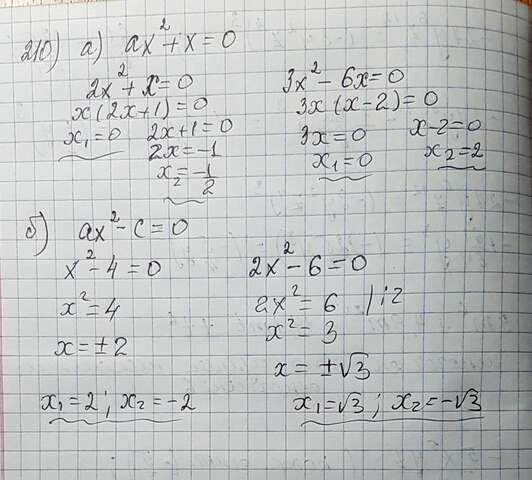 210) а) ax² + x = 0
2x² + x = 0
x(2x+1) = 0
x₁ = 0 2x+1 = 0
2x = -1
x₂ = -1/2
3x² - 6x = 0
3x(x-2) = 0
3x = 0 x-2 = 0
x₁ = 0 x₂ = 2
б) ax² - c = 0
x² - 4 = 0
x² = 4
x = ±2
x₁ = 2; x₂ = -2
2x² - 6 = 0
ax² = 6 /:2
x² = 3
x = ±√3
x₁ = √3; x₂ = -√3